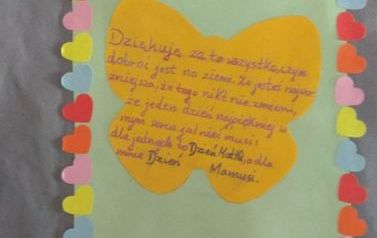 Dziękuję za to wszystko, czym
dobroć jest na ziemi. Że jesteś najważ
niejsza, że tego nikt nie zmieni,
że jeden dzień najpiękniej w
mym sercu jaśnieć musi:
dla jednych to Dzień Matki, a dla
mnie Dzień Mamusi.